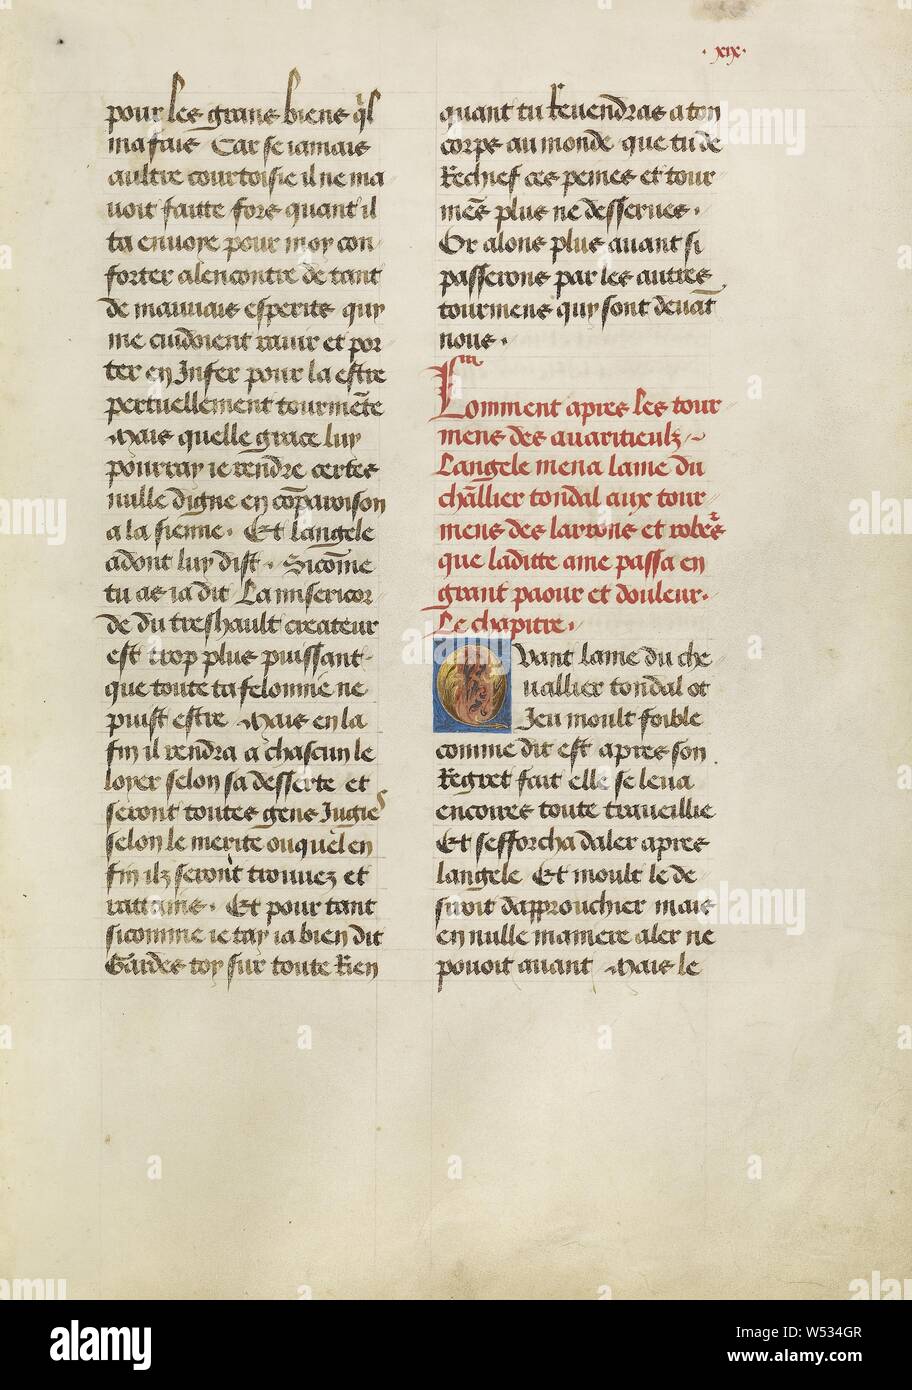 · xix ·
pour les grans biens q̃l
ma fais Car se iamais
aultre courtoisie il ne ma
uoit faitte fors quant il
ta enuoye pour moy con
forter alencontre de tant
de mauuais esperits quy
me cuidoient rauir et por
ter en Infer pour la estre
pertuellement tourmẽte
Mais quelle grace luy
pourray ie rendre certes
nulle digne en cõparoison
a la sienne · Et langele
adont luy dist · Sicõme
tu as ia dit La misericor
de du treshault createur
est trop plus puissant
que toute ta felonnie ne
puist estre Mais en la
fin il rendra a chascun le
loyer selon sa desserte et
seront toutes gens Jugies
selon le merite ouquel en
fin ilz seront trouuez et
rattains · Et pour tant
sicomme ie tay ia bien dit
Gardes toy sur toute Rien
quant tu Reuendras a ton
corps au monde que tu de
Rechief ces peines et tour
mẽs plus ne desserues ·
Or alons plus auant si
passerons par les autres
tourmens quy sont deuãt
nous ·
Comment apres les tour
mens des auaritieulz
Langele mena lame du
chãllier tondal aux tour
mens des larrons et robeʳs
que laditte ame passa en
grant paour et douleur ·
Le chapitre ·
Quant lame du che
uallier tondal ot
Jeu moult foible
comme dit est apres son
Regret fait elle se leua
encoires toute traueillie
Et sefforcha daler apres
langele Et moult le de
siroit dapprouchier mais
en nulle maniere aler ne
pouoit auant Mais le
alamy
Image ID: W534GR
www.alamy.com